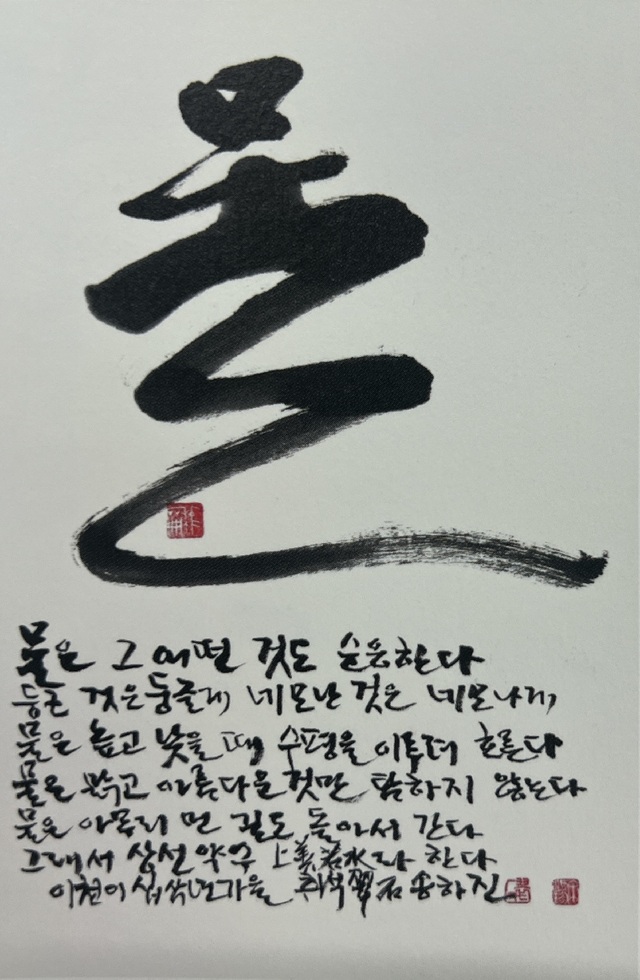 물
물은 그 어떤 것도 순응한다
둥근 것은 둥글게, 네모난 것은 네모나게,
물은 높고 낮을 때 수평을 이루며 흐른다
물은 맑고 아름다운 것만 탐하지 않는다
물은 아무리 먼 길도 돌아서 간다
그래서 상선약수 上善若水라 한다
이천이십삼년 가을 취석 翠石 송하진